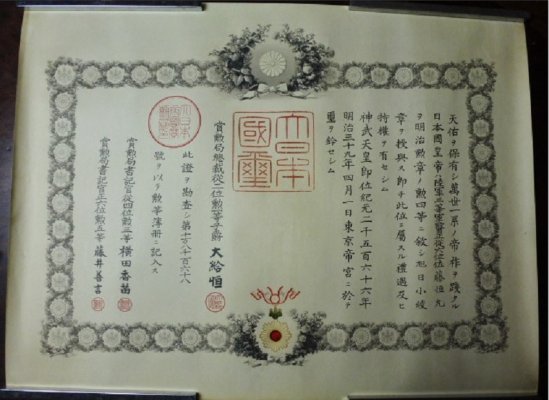 天佑ヲ保有シ萬世一系ノ帝祚ヲ踐タル
日本國皇帝ハ陸軍三等軍醫正從六位佐藤恒丸
ヲ明治勲章ノ勲四等ニ敘シ旭日小綬
章ヲ授與ス即チ此位ニ屬スル禮遇及ヒ
特權ヲ有セシム
神武天皇即位紀元二千五百六十六年
明治三十九年四月一日東京帝宮ニ於テ
璽ヲ鈐セシム
大日本
國璽
賞勲局總裁從二位勲一等子爵 大給恒
此證ヲ勘査シ第
號ヲ以テ勲等簿册ニ記入ス
賞勲局書記官從四位勲三等 横田香苗
賞勲局書記官正六位勲五等 藤井善言